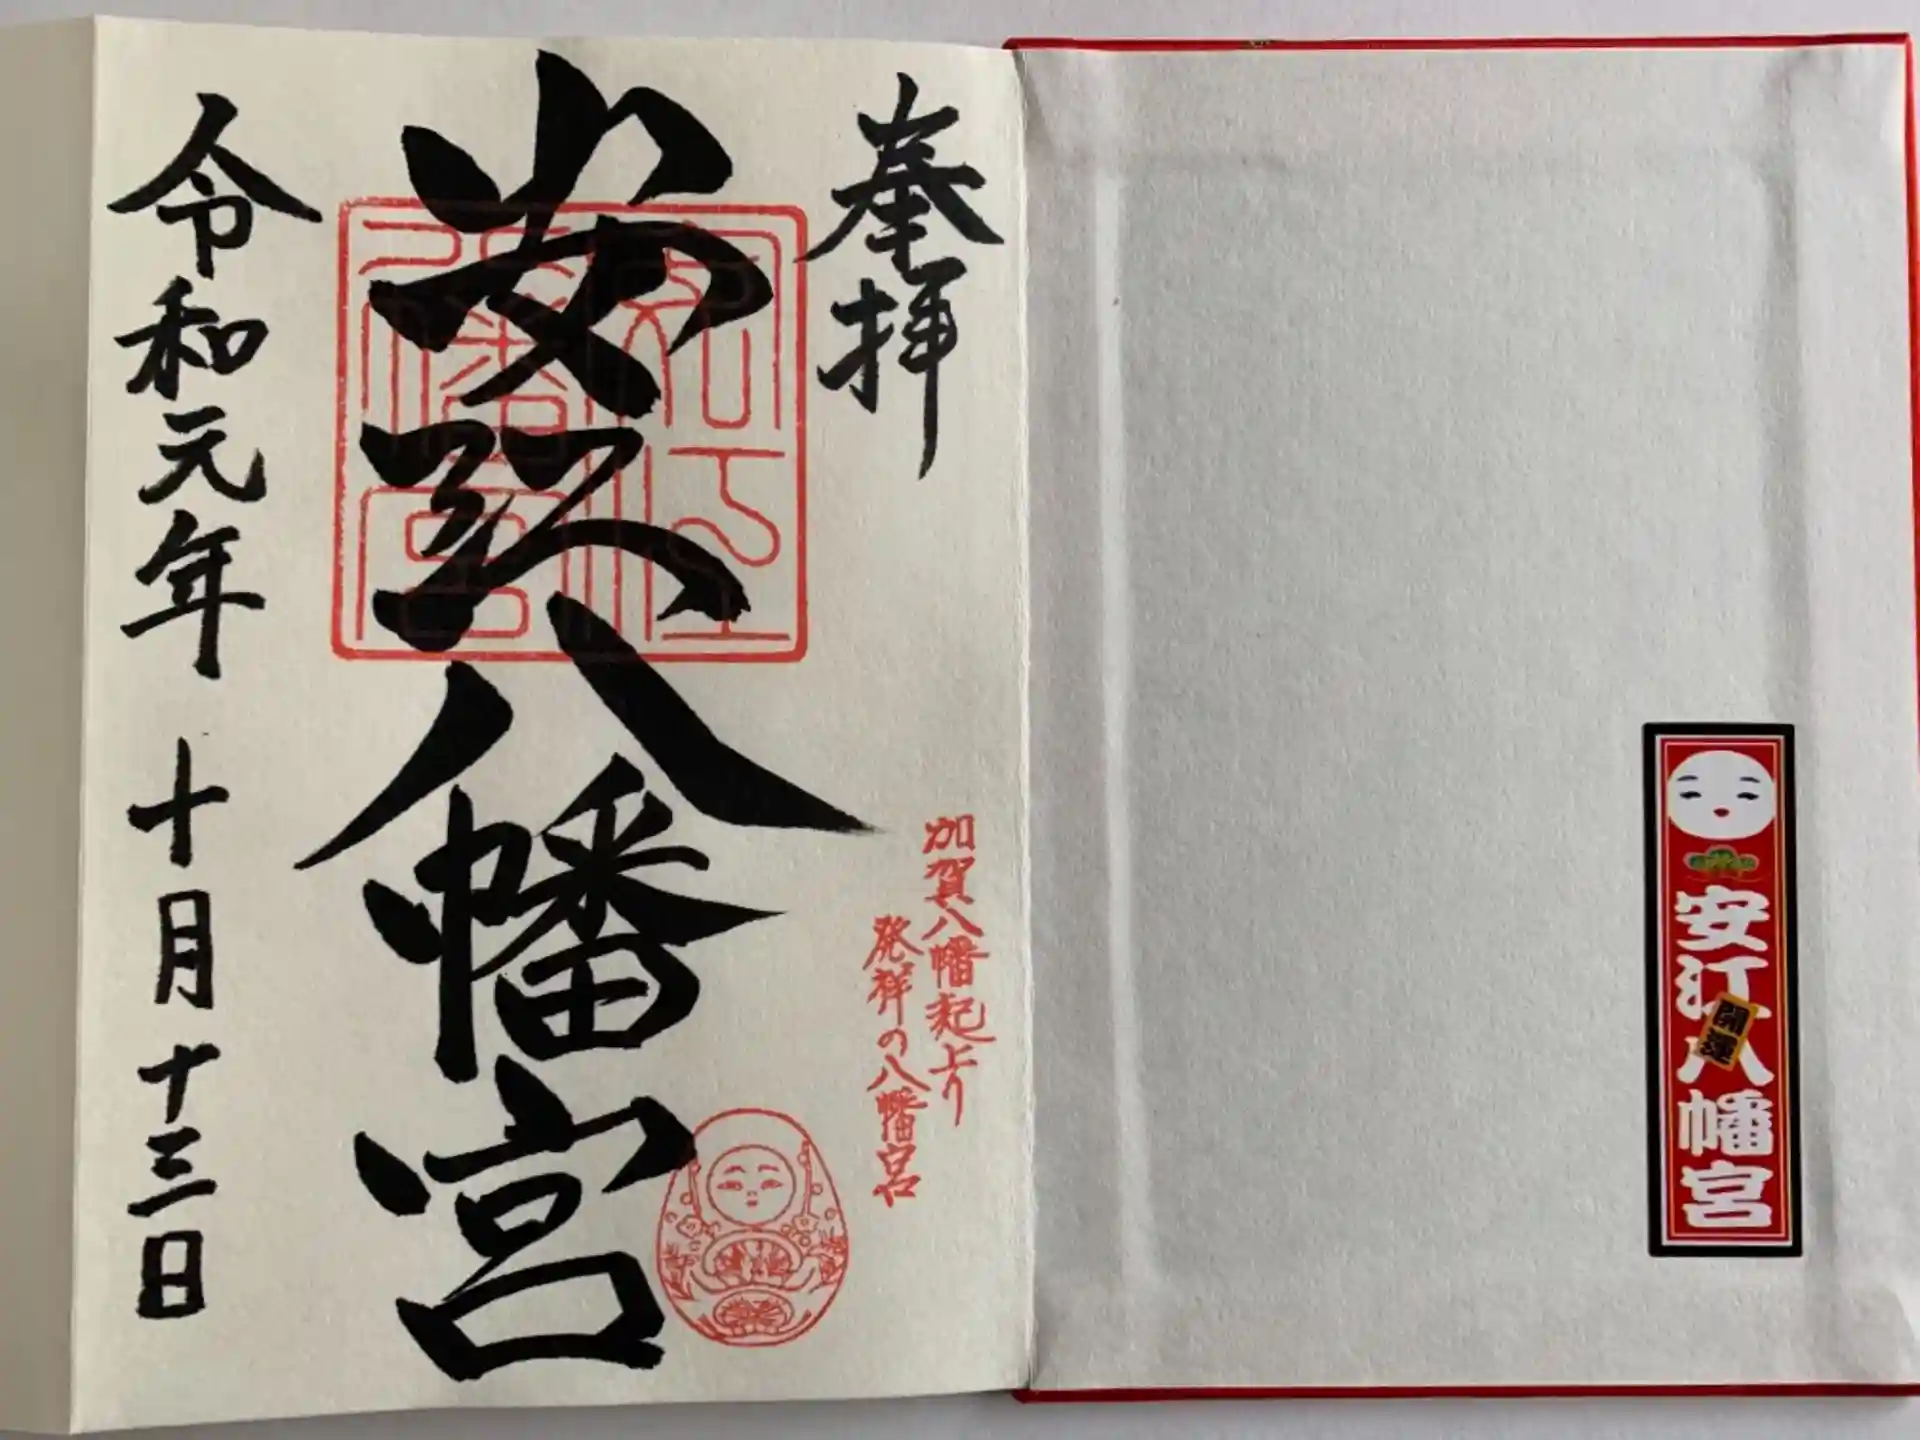 安江八幡宮
開運
奉拝
加賀八幡起上り
発祥の八幡宮
安江八幡宮
安江
八幡宮
令和元年 十月十三日